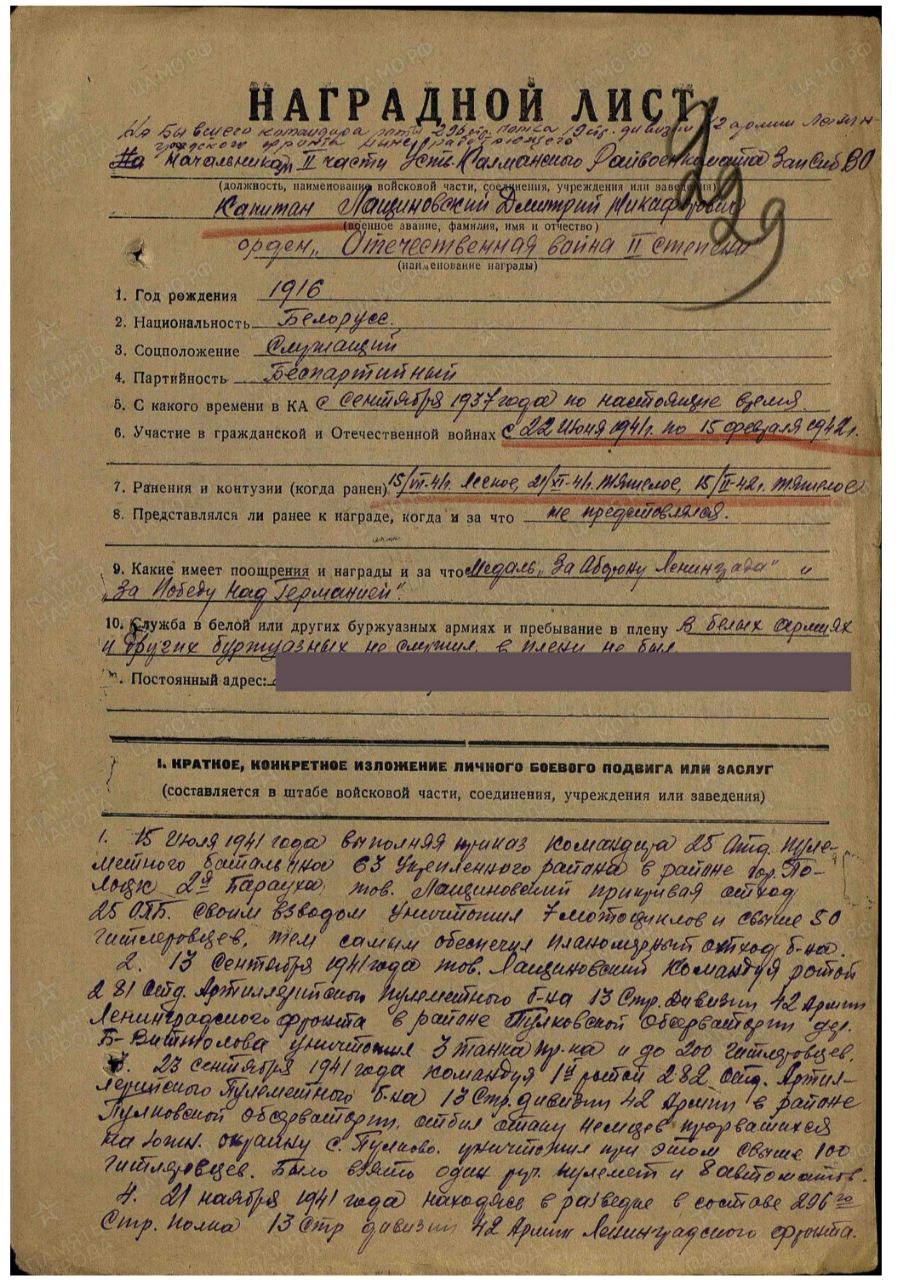 НАГРАДНОЙ ЛИСТ
На Бывшего командира роты 296 стр. полка 13 стр. дивизии 42 армии Ленин-
градского фронта ныне работающего
На начальника II части Усть-Калманского Райвоенкомата ЗапСибВО
(должность, наименование войсковой части, соединения, учреждения или заведения)
Капитан Лащиновский Дмитрий Никафорович
(военное звание, фамилия, имя и отчество)
орден „Отечественная война II степени
(наименование награды)
29
1. Год рождения 1916
2. Национальность Белорусс.
3. Соцположение Служащий
4. Партийность Беспартийный
5. С какого времени в КА с сентября 1937 года по настоящие время
6. Участие в гражданской и Отечественной войнах с 22 июня 1941г. по 15 февраля 1942г.
7. Ранения и контузии (когда ранен) 15/VII-41г. Легкое, 21/XI-41г. тяжелое, 15/II-42г. тяжелое
8. Представлялся ли ранее к награде, когда и за что не предстовлялся.
9. Какие имеет поощрения и награды и за что Медаль „За Аборону Ленинграда" и
„За Победу над Германией".
10. Служба в белой или других буржуазных армиях и пребывание в плену в белых армиях
и других буржуазных не служил, в плену не был
Постоянный адрес:
I. КРАТКОЕ, КОНКРЕТНОЕ ИЗЛОЖЕНИЕ ЛИЧНОГО БОЕВОГО ПОДВИГА ИЛИ ЗАСЛУГ
(составляется в штабе войсковой части, соединения, учреждения или заведения)
1. 15 Июля 1941 года выполняя приказ командира 25 Отд. пуле-
метного баталиона 63 Укрепленного района в районе гор. По-
лоцк 2я Барауха, тов. Лащиновский прикрывая отход
25 ОПБ. своим взводом уничтожил 7 мотоциклов и свыше 50
гитлеровцев, тем самым обеспечил планомерный отход б-на.
2. 13 Сентября 1941 года тов. Лащиновский командуя ротой
281 Отд. Артиллерийского пулеметного б-на 13 Стр. Дивизии 42 Армии
Ленинградского фронта в районе Пулковской Обсерватории дер.
Б-Витголова уничтожил 3 танка пр-ка и до 200 гитлеровцев.
3. 23 сентября 1941 года командуя 1й ротой 282 Отд. Артил-
лерийского Пулеметного б-на 13 Стр. дивизии 42 Армии в районе
Пулковской обсерватории, отбил атаку немцев прорвавшихся
на южн. окраину с. Пулково. уничтожил при этом свыше 100
гитлеровцев. Было взято один руч. пулемет и 8 автоматов.
4. 21 ноября 1941 года находясь в разведке в составе 296го
Стр. полка 13 Стр дивизии 42 Армии Ленинградского фронта.